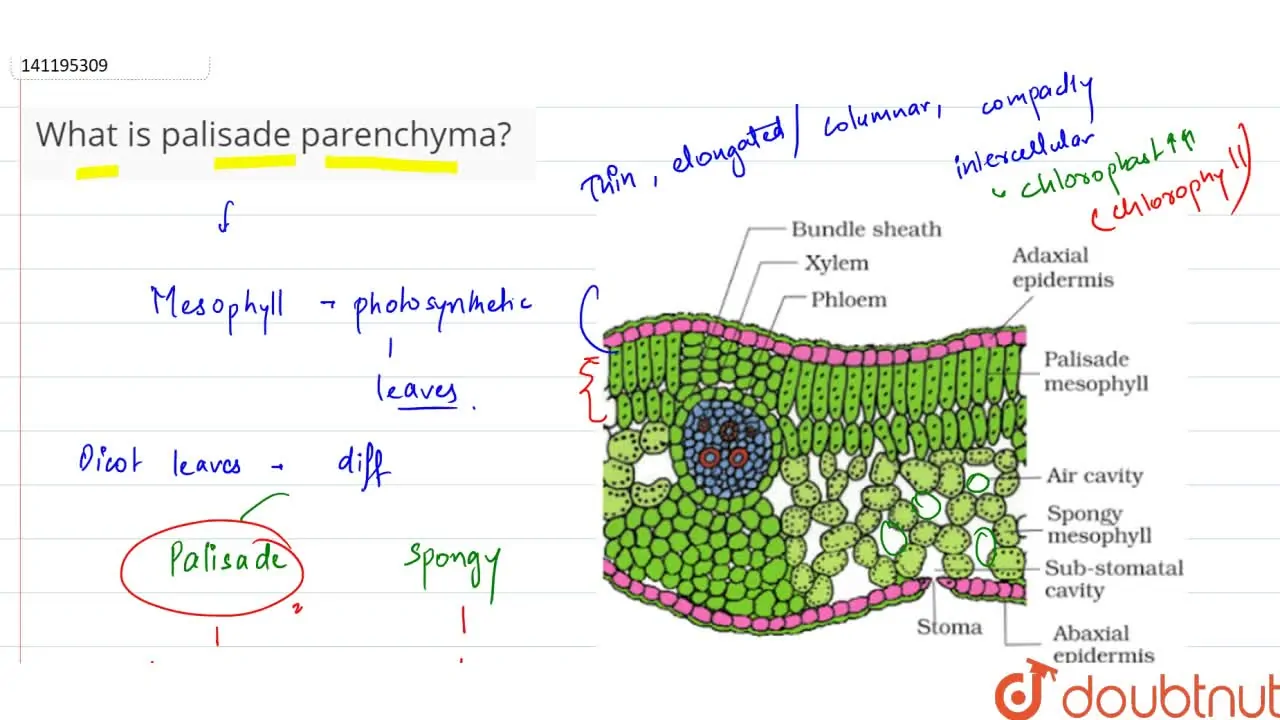 141195309
What is palisade parenchyma?
Thin, elongated / columnar, compactly
intercellular
chloroplast ↑↑
(chlorophyll)
Mesophyll → photosynthetic
leaves.
Dicot leaves → diff
Palisade Spongy
Bundle sheath
Xylem
Phloem
Adaxial
epidermis
Palisade
mesophyll
Air cavity
Spongy
mesophyll
Sub-stomatal
cavity
Stoma
Abaxial
epidermis
doubtnut